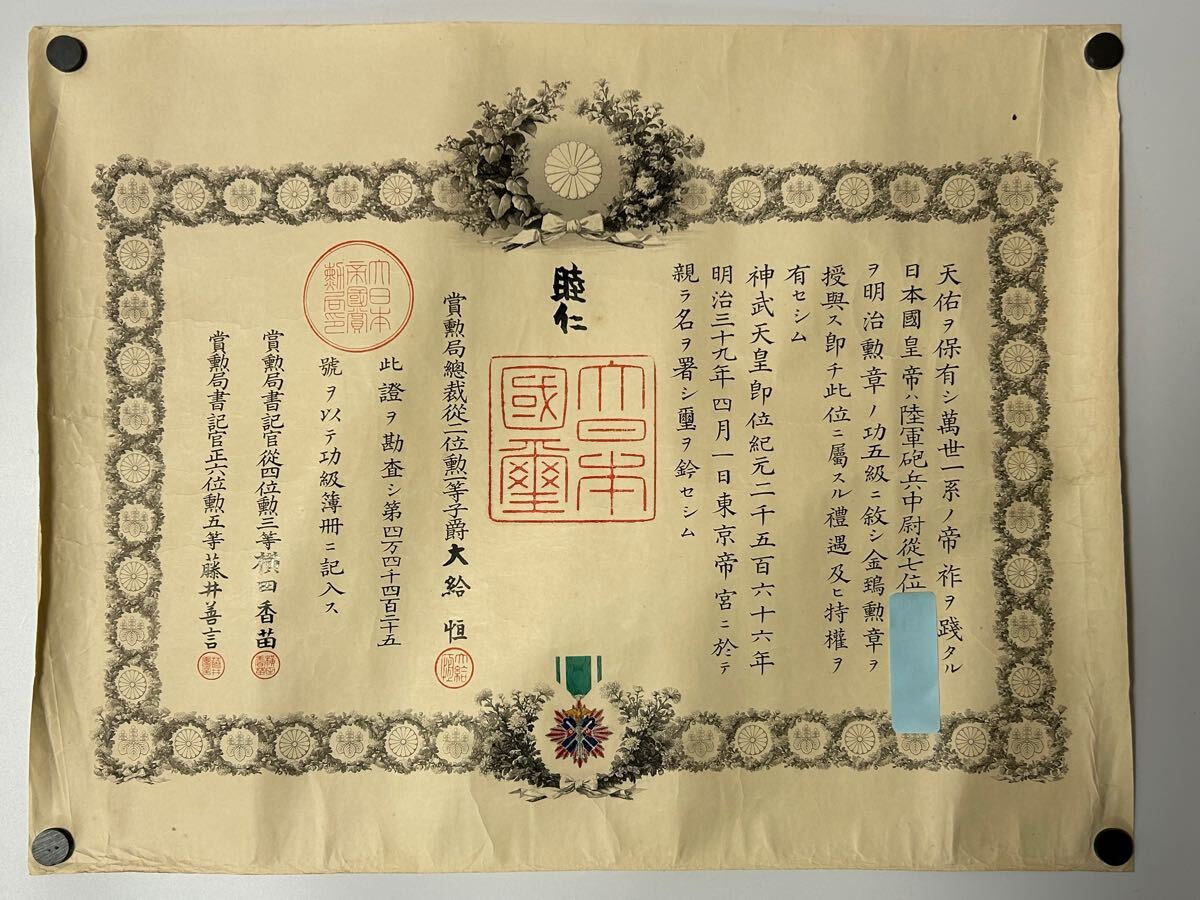 天佑ヲ保有シ萬世一系ノ帝祚ヲ踐タル
日本國皇帝ハ陸軍砲兵中尉從七位
ヲ明治勲章ノ功五級ニ敘シ金鵄勲章ヲ
授與ス即チ此位ニ屬スル禮遇及ヒ特權ヲ
有セシム
神武天皇即位紀元二千五百六十六年
明治三十九年四月一日東京帝宮ニ於テ
親ラ名ヲ署シ璽ヲ鈐セシム
睦仁
大日本國璽
賞勲局總裁從二位勲一等子爵大給恒
大給恒
此證ヲ勘査シ第四万四千四百三十五
號ヲ以テ功級簿冊ニ記入ス
大日本帝國賞勲局印
賞勲局書記官從四位勲三等横田香苗
賞勲局書記官正六位勲五等藤井善言